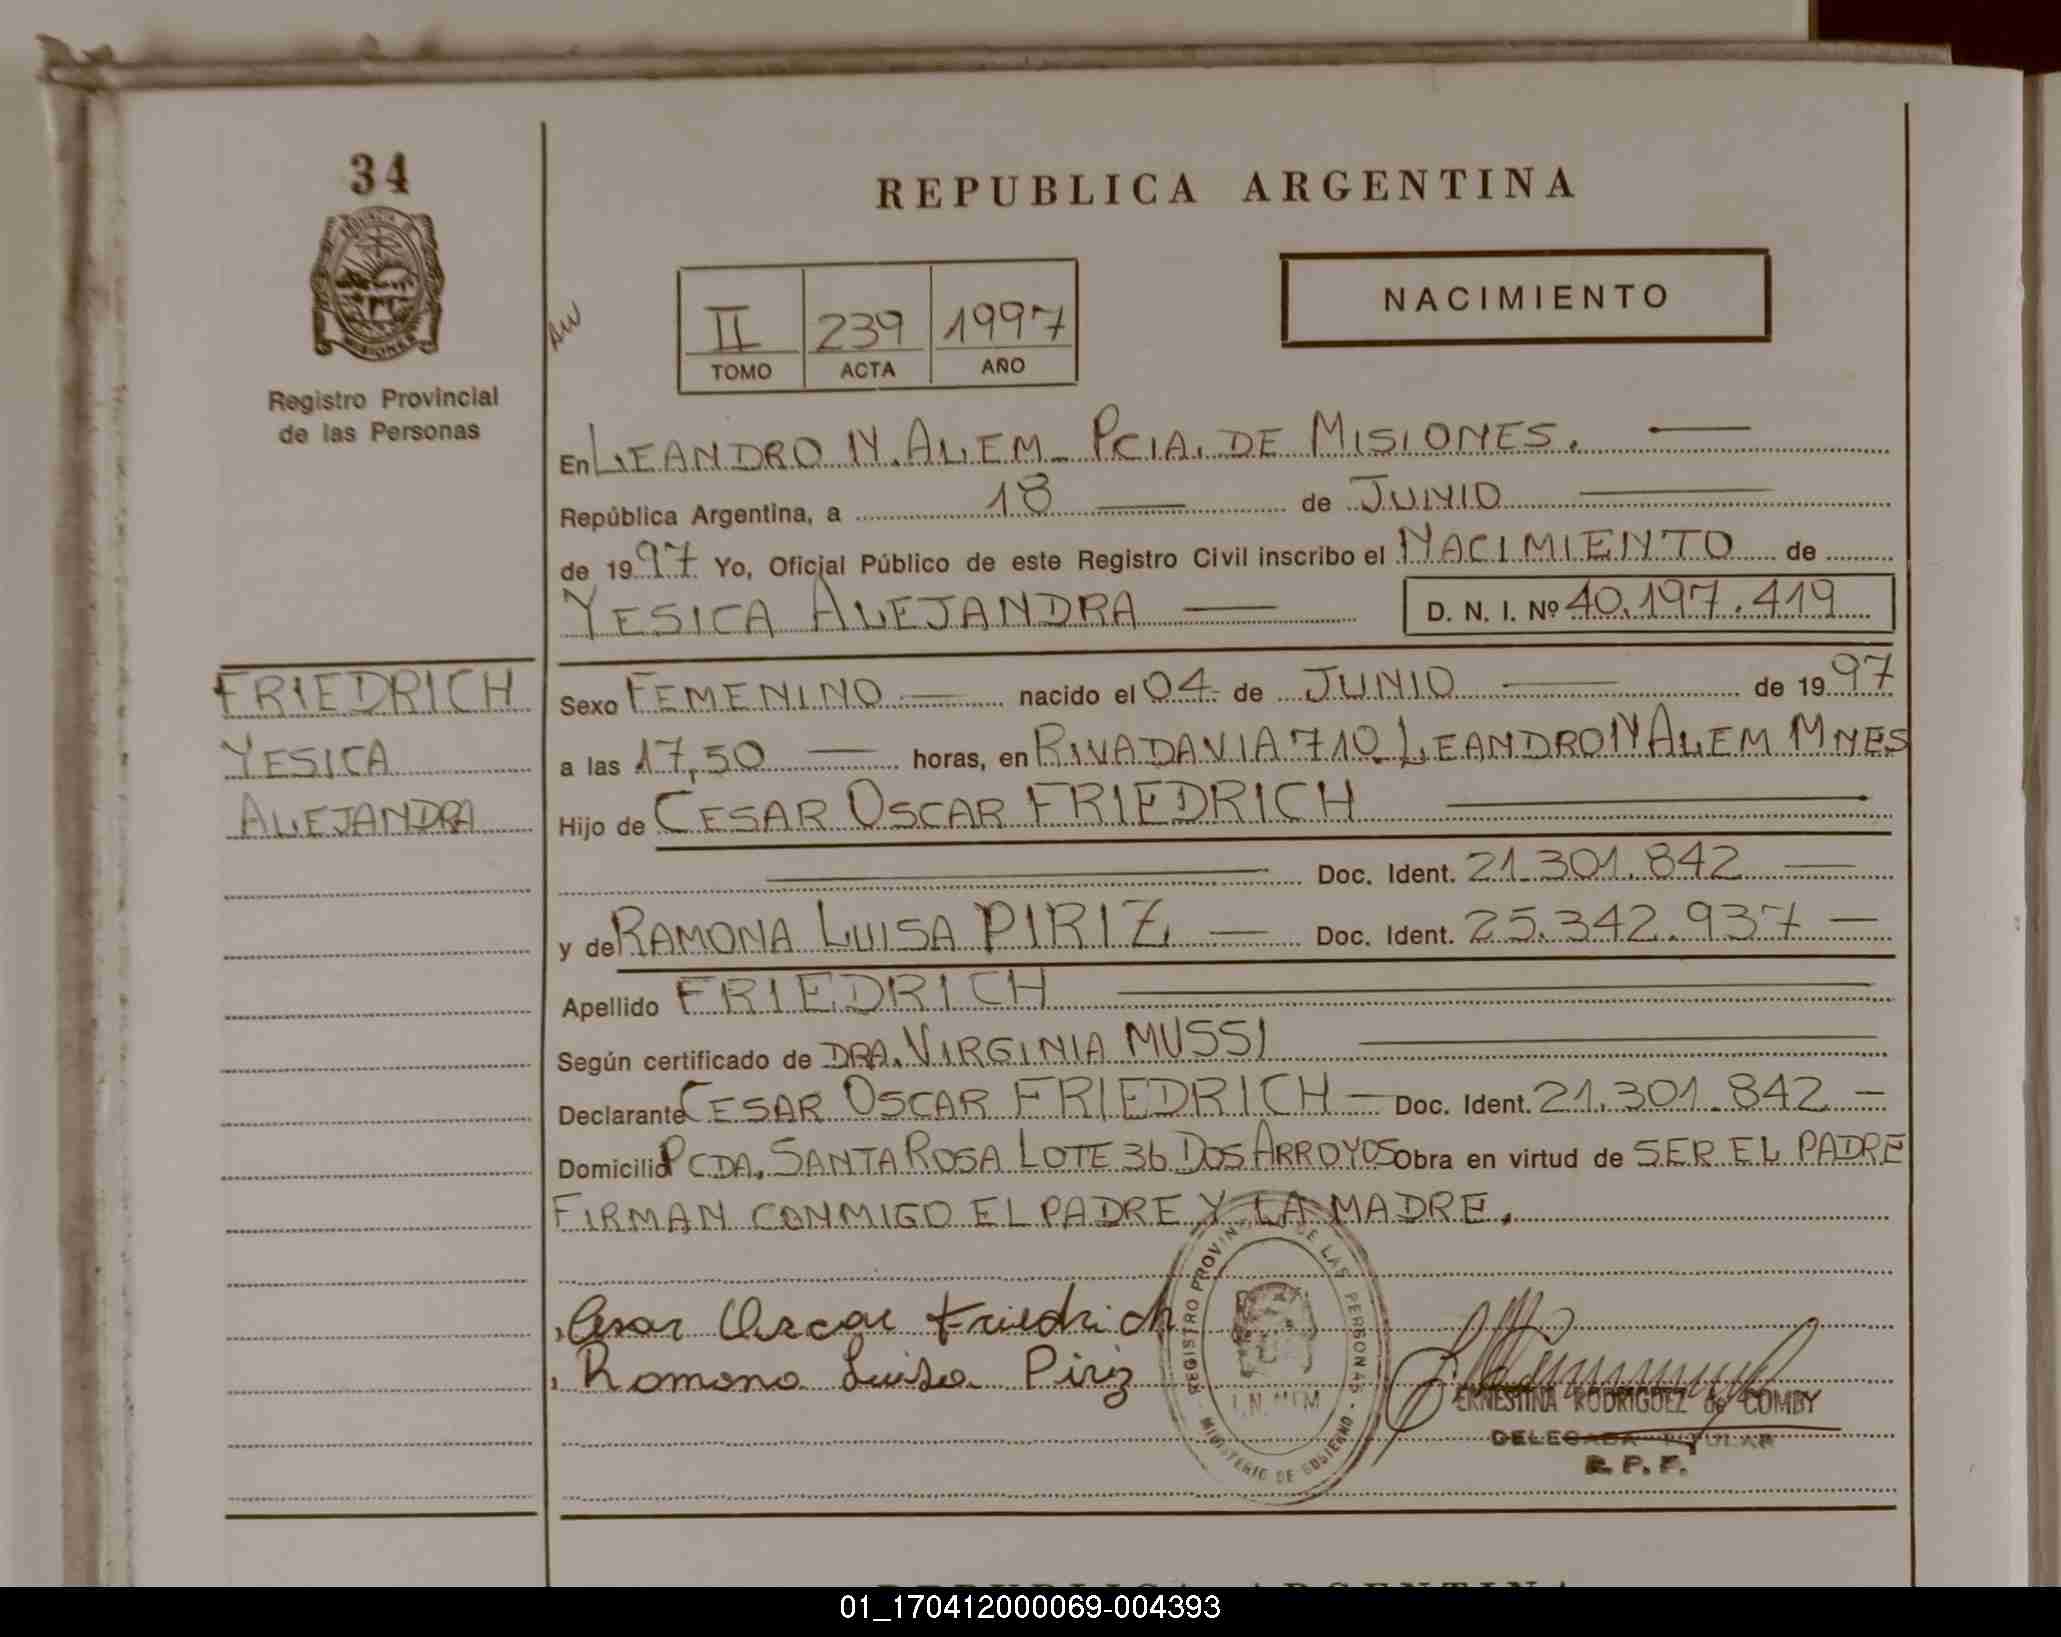 34
REPUBLICA ARGENTINA
II 239 1997
TOMO ACTA AÑO
NACIMIENTO
Registro Provincial
de las Personas
En LEANDRO N. ALEM - PCIA. DE MISIONES.
República Argentina, a 18 de JUNIO
de 1997 Yo, Oficial Público de este Registro Civil inscribo el NACIMIENTO de
YESICA ALEJANDRA D. N. I. Nº 40.197.419
FRIEDRICH
YESICA
ALEJANDRA
Sexo FEMENINO nacido el 04 de JUNIO de 1997
a las 17,50 horas, en RIVADAVIA 710. LEANDRO N ALEM MNES
Hijo de CESAR OSCAR FRIEDRICH
Doc. Ident. 21.301.842
y de RAMONA LUISA PIRIZ Doc. Ident. 25.342.937
Apellido FRIEDRICH
Según certificado de DRA. VIRGINIA MUSSI
Declarante CESAR OSCAR FRIEDRICH Doc. Ident. 21.301.842
Domicilio PCDA. SANTA ROSA LOTE 36 DOS ARROYOS Obra en virtud de SER EL PADRE
FIRMAN CONMIGO EL PADRE Y LA MADRE.
Cesar Oscar Friedrich
Ramona Luisa Piriz
REGISTRO PROVINCIAL DE LAS PERSONAS
MINISTERIO DE GOBIERNO
ERNESTINA RODRIGUEZ de COMBY
DELEGADA TITULAR
R. P. F.
REPUBLICA ARGENTINA
01_170412000069-004393